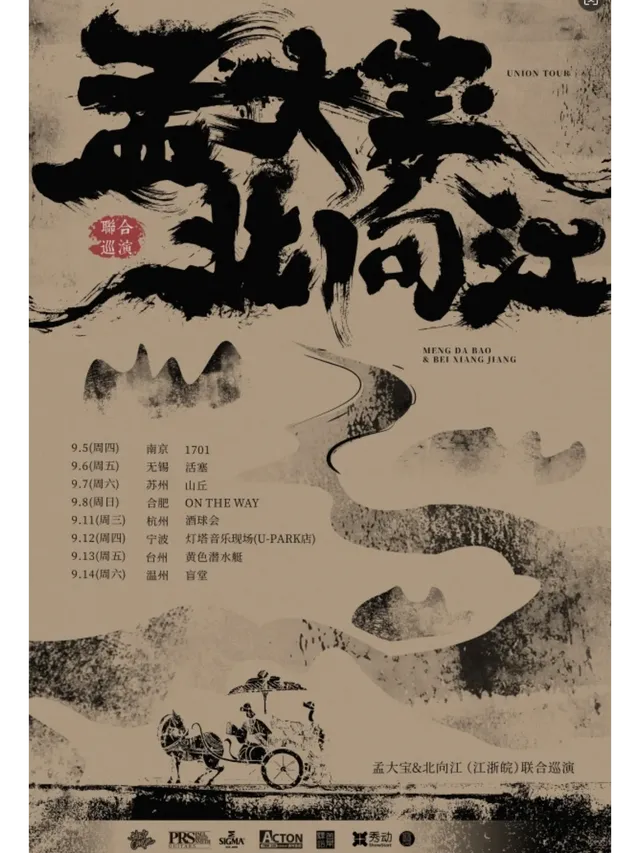 孟大宝
UNION TOUR
北向江
聯合
巡演
MENG DA BAO
& BEI XIANG JIANG
9.5(周四) 南京 1701
9.6(周五) 无锡 活塞
9.7(周六) 苏州 山丘
9.8(周日) 合肥 ON THE WAY
9.11(周三) 杭州 酒球会
9.12(周四) 宁波 灯塔音乐现场(U-PARK店)
9.13(周五) 台州 黄色潜水艇
9.14(周六) 温州 盲堂
孟大宝&北向江（江浙皖）联合巡演
PRS SIGMA ACTON 秀动